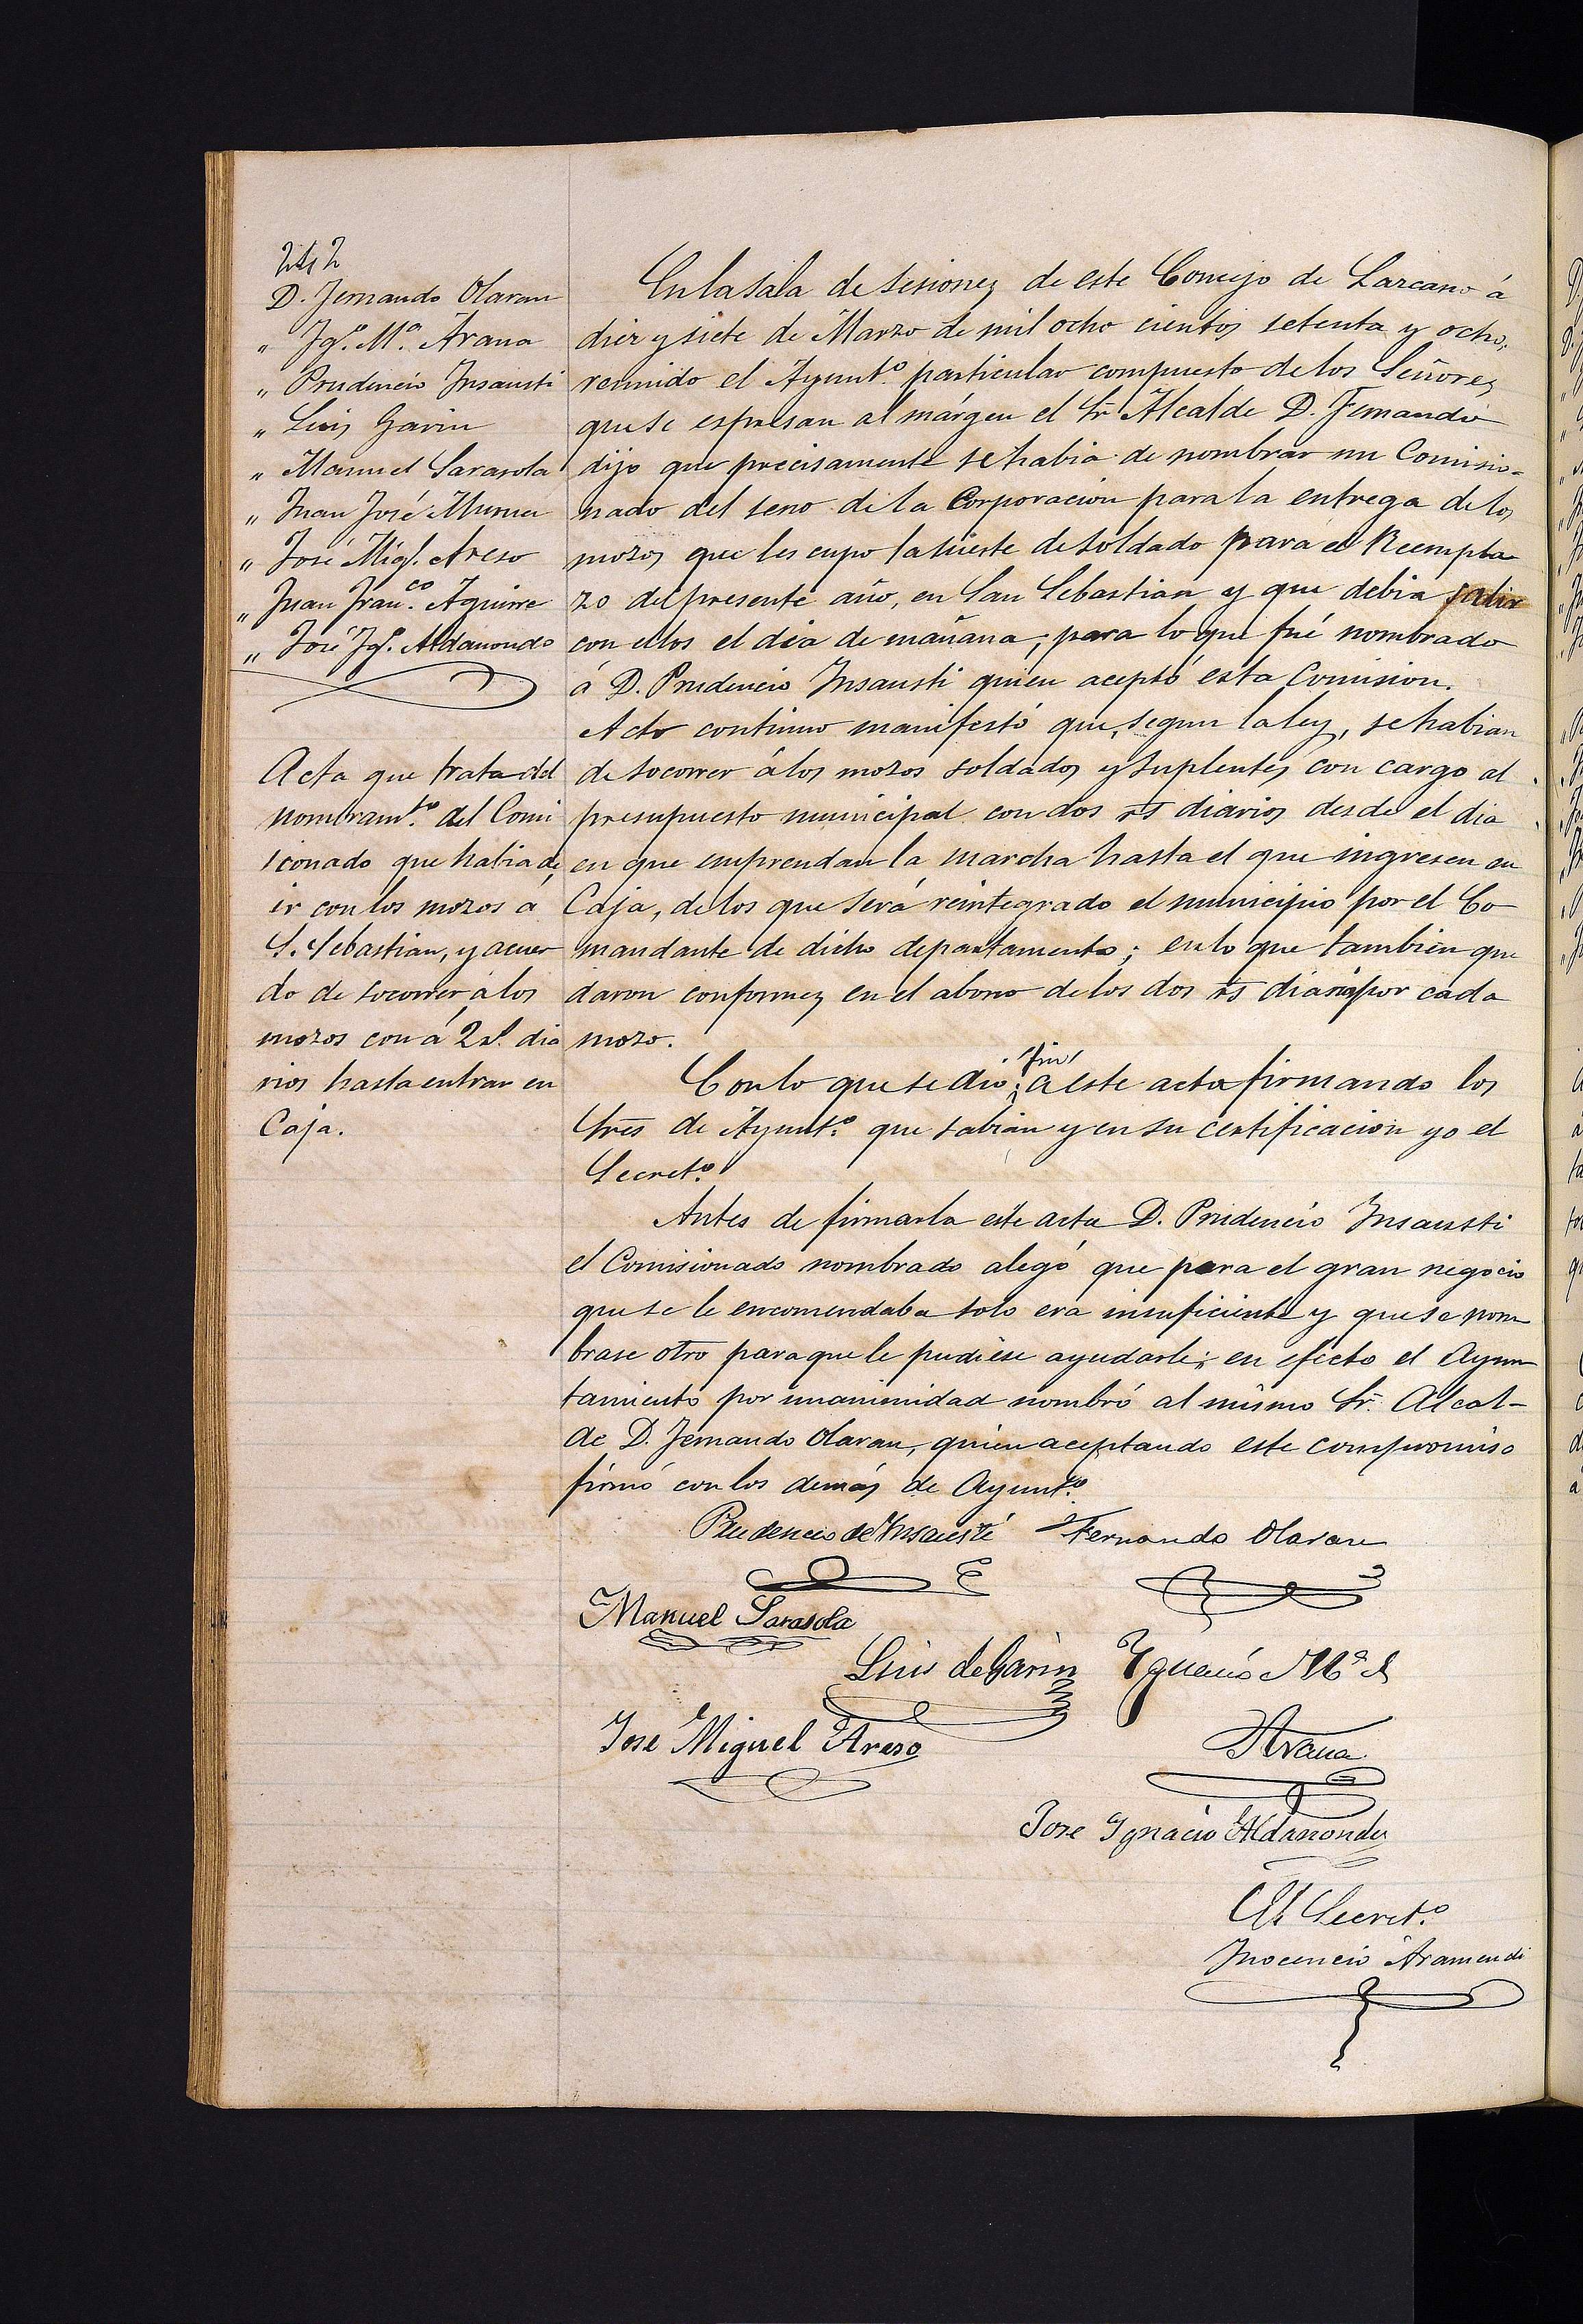 242
D. Fernando Olaran
" Ygº. Mª. Arana
" Prudencio Insausti
" Luis Garin
" Manuel Sarasola
" Juan José Munua
" José Migl. Areso
" Juan Franco. Aguirre
" José Ygº. Aldanondo
Acta que trata del
nombramto. del Comi
sionado que habia de
ir con los mozos á
S. Sebastian, y acuer
do de socorrer á los
mozos con á 2 rs. dia
rios hasta entrar en
Caja.
En la sala de sesiones de este Concejo de Lazcano á
diez y siete de Marzo de mil ocho cientos setenta y ocho,
reunido el Ayuntº. particular compuesto de los Señores
que se espresan al márgen el Sr. Alcalde D. Fernando
dijo que precisamente se habia de nombrar un Comisio-
nado del seno de la Corporacion para la entrega de los
mozos que les cupo la suerte de soldado para el Reempla
zo del presente año, en San Sebastian y que debia salir
con ellos el dia de mañana; para lo que fué nombrado
á D. Prudencio Insausti quien aceptó esta Comision.
Acto continuo manifestó que, segun la ley, se habian
de socorrer á los mozos soldados y suplentes con cargo al
presupuesto municipal con dos rs diarios desde el dia
en que emprendan la marcha hasta el que ingresen en
Caja, de los que será reintegrado el municipio por el Co-
mandante de dicho departamento; en lo que tambien que
daron conformes en el abono de los dos rs diarios por cada
mozo.
Con lo que se dió fin á este acto firmando los
Sres de Ayuntº. que sabian y en su certificacion yo el
Secretº.
Antes de firmarla este acta D. Prudencio Insausti
el Comisionado nombrado alegó que para el gran negocio
que se le encomendaba solo era insuficiente y que se nom
brase otro para que le pudiese ayudarle; en efecto el Ayun
tamiento por unanimidad nombró al mismo Sr. Alcal-
de D. Fernando Olaran, quien aceptando este compromiso
firmó con los demás de Ayuntº.
Prudencio de Insausti Fernando Olaran
Manuel Sarasola
Luis de Garin Ygnacio Mª. de
Jose Miguel Areso Arana
Jose Ygnacio Aldanondo
El Secretº.
Inocencio Aramendi